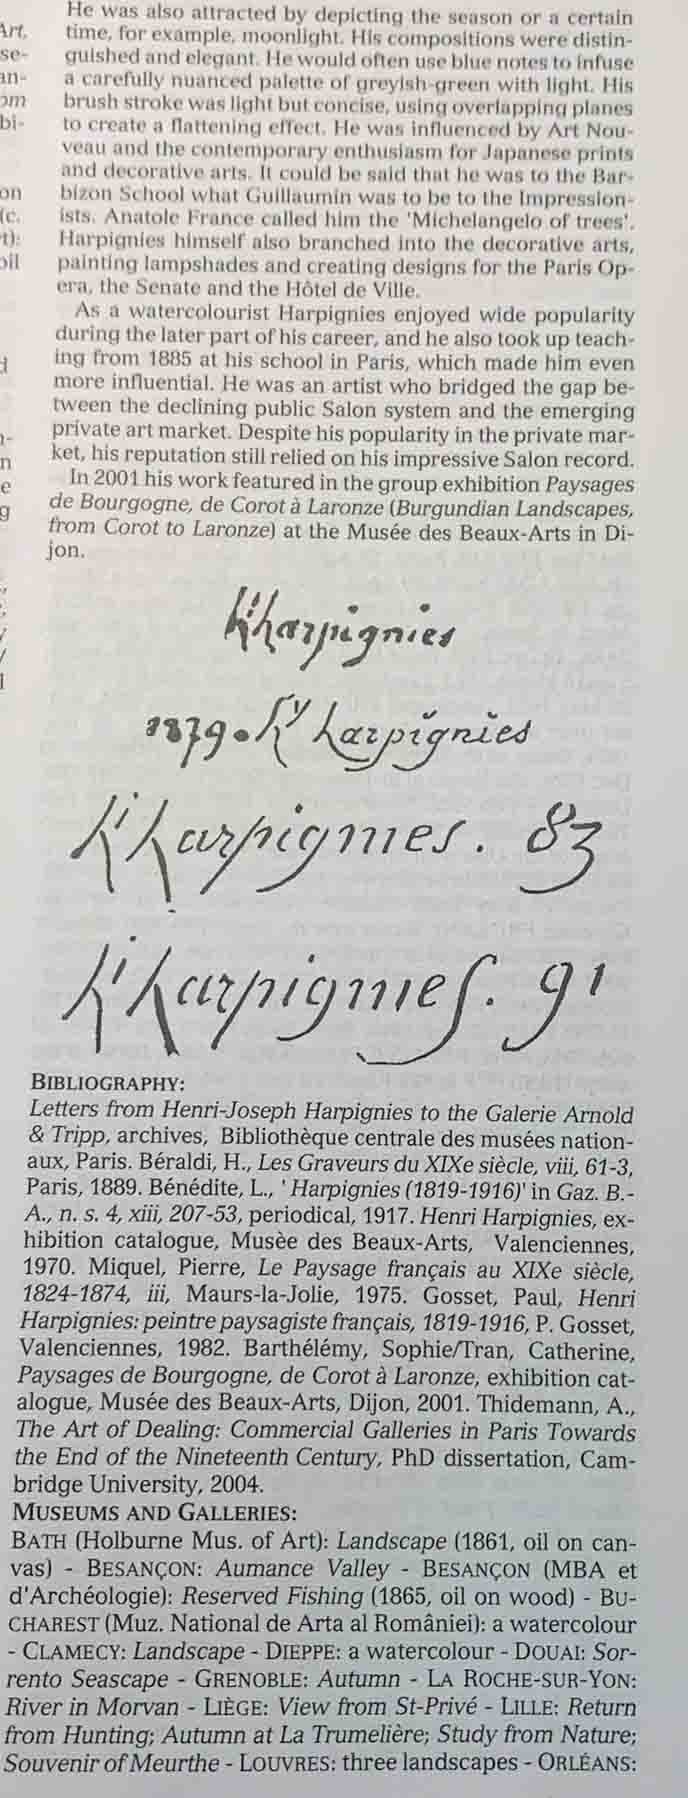 Art,
se-
an-
om
bi-
on
(c.
t):
oil
d
n-
n
e
g
y
l
He was also attracted by depicting the season or a certain
time, for example, moonlight. His compositions were distin-
guished and elegant. He would often use blue notes to infuse
a carefully nuanced palette of greyish-green with light. His
brush stroke was light but concise, using overlapping planes
to create a flattening effect. He was influenced by Art Nou-
veau and the contemporary enthusiasm for Japanese prints
and decorative arts. It could be said that he was to the Bar-
bizon School what Guillaumin was to be to the Impression-
ists. Anatole France called him the 'Michelangelo of trees'.
Harpignies himself also branched into the decorative arts,
painting lampshades and creating designs for the Paris Op-
era, the Senate and the Hôtel de Ville.
As a watercolourist Harpignies enjoyed wide popularity
during the later part of his career, and he also took up teach-
ing from 1885 at his school in Paris, which made him even
more influential. He was an artist who bridged the gap be-
tween the declining public Salon system and the emerging
private art market. Despite his popularity in the private mar-
ket, his reputation still relied on his impressive Salon record.
In 2001 his work featured in the group exhibition Paysages
de Bourgogne, de Corot à Laronze (Burgundian Landscapes,
from Corot to Laronze) at the Musée des Beaux-Arts in Di-
jon.
h' harpignies
1879. hy harpignies
h' harpignies. 83
h' harpignies. 91
BIBLIOGRAPHY:
Letters from Henri-Joseph Harpignies to the Galerie Arnold
& Tripp, archives, Bibliothèque centrale des musées nation-
aux, Paris. Béraldi, H., Les Graveurs du XIXe siècle, viii, 61-3,
Paris, 1889. Bénédite, L., ' Harpignies (1819-1916)' in Gaz. B.-
A., n. s. 4, xiii, 207-53, periodical, 1917. Henri Harpignies, ex-
hibition catalogue, Musèe des Beaux-Arts, Valenciennes,
1970. Miquel, Pierre, Le Paysage français au XIXe siècle,
1824-1874, iii, Maurs-la-Jolie, 1975. Gosset, Paul, Henri
Harpignies: peintre paysagiste français, 1819-1916, P. Gosset,
Valenciennes, 1982. Barthélémy, Sophie/Tran, Catherine,
Paysages de Bourgogne, de Corot à Laronze, exhibition cat-
alogue, Musée des Beaux-Arts, Dijon, 2001. Thidemann, A.,
The Art of Dealing: Commercial Galleries in Paris Towards
the End of the Nineteenth Century, PhD dissertation, Cam-
bridge University, 2004.
MUSEUMS AND GALLERIES:
BATH (Holburne Mus. of Art): Landscape (1861, oil on can-
vas) - BESANÇON: Aumance Valley - BESANÇON (MBA et
d'Archéologie): Reserved Fishing (1865, oil on wood) - BU-
CHAREST (Muz. National de Arta al României): a watercolour
- CLAMECY: Landscape - DIEPPE: a watercolour - DOUAI: Sor-
rento Seascape - GRENOBLE: Autumn - LA ROCHE-SUR-YON:
River in Morvan - LIÈGE: View from St-Privé - LILLE: Return
from Hunting; Autumn at La Trumelière; Study from Nature;
Souvenir of Meurthe - LOUVRES: three landscapes - ORLÉANS: